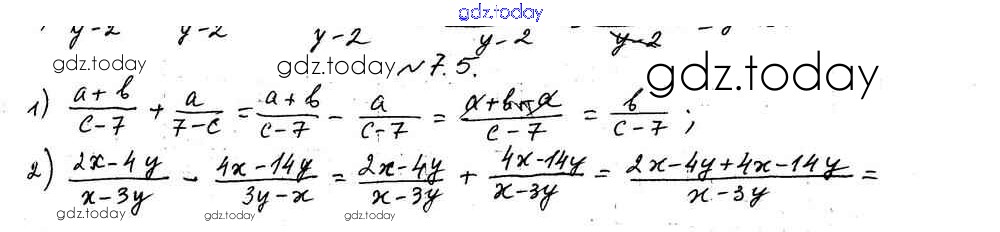 gdz.today
y-2 y-2 y-2 y-2 y-2
gdz.today gdz.today №7.5. gdz.today
1) (a+b)/(c-7) + a/(7-c) = (a+b)/(c-7) - a/(c-7) = (a+b-a)/(c-7) = b/(c-7);
2) (2x-4y)/(x-3y) - (4x-14y)/(3y-x) = (2x-4y)/(x-3y) + (4x-14y)/(x-3y) = (2x-4y+4x-14y)/(x-3y) =
gdz.today gdz.today gdz.today